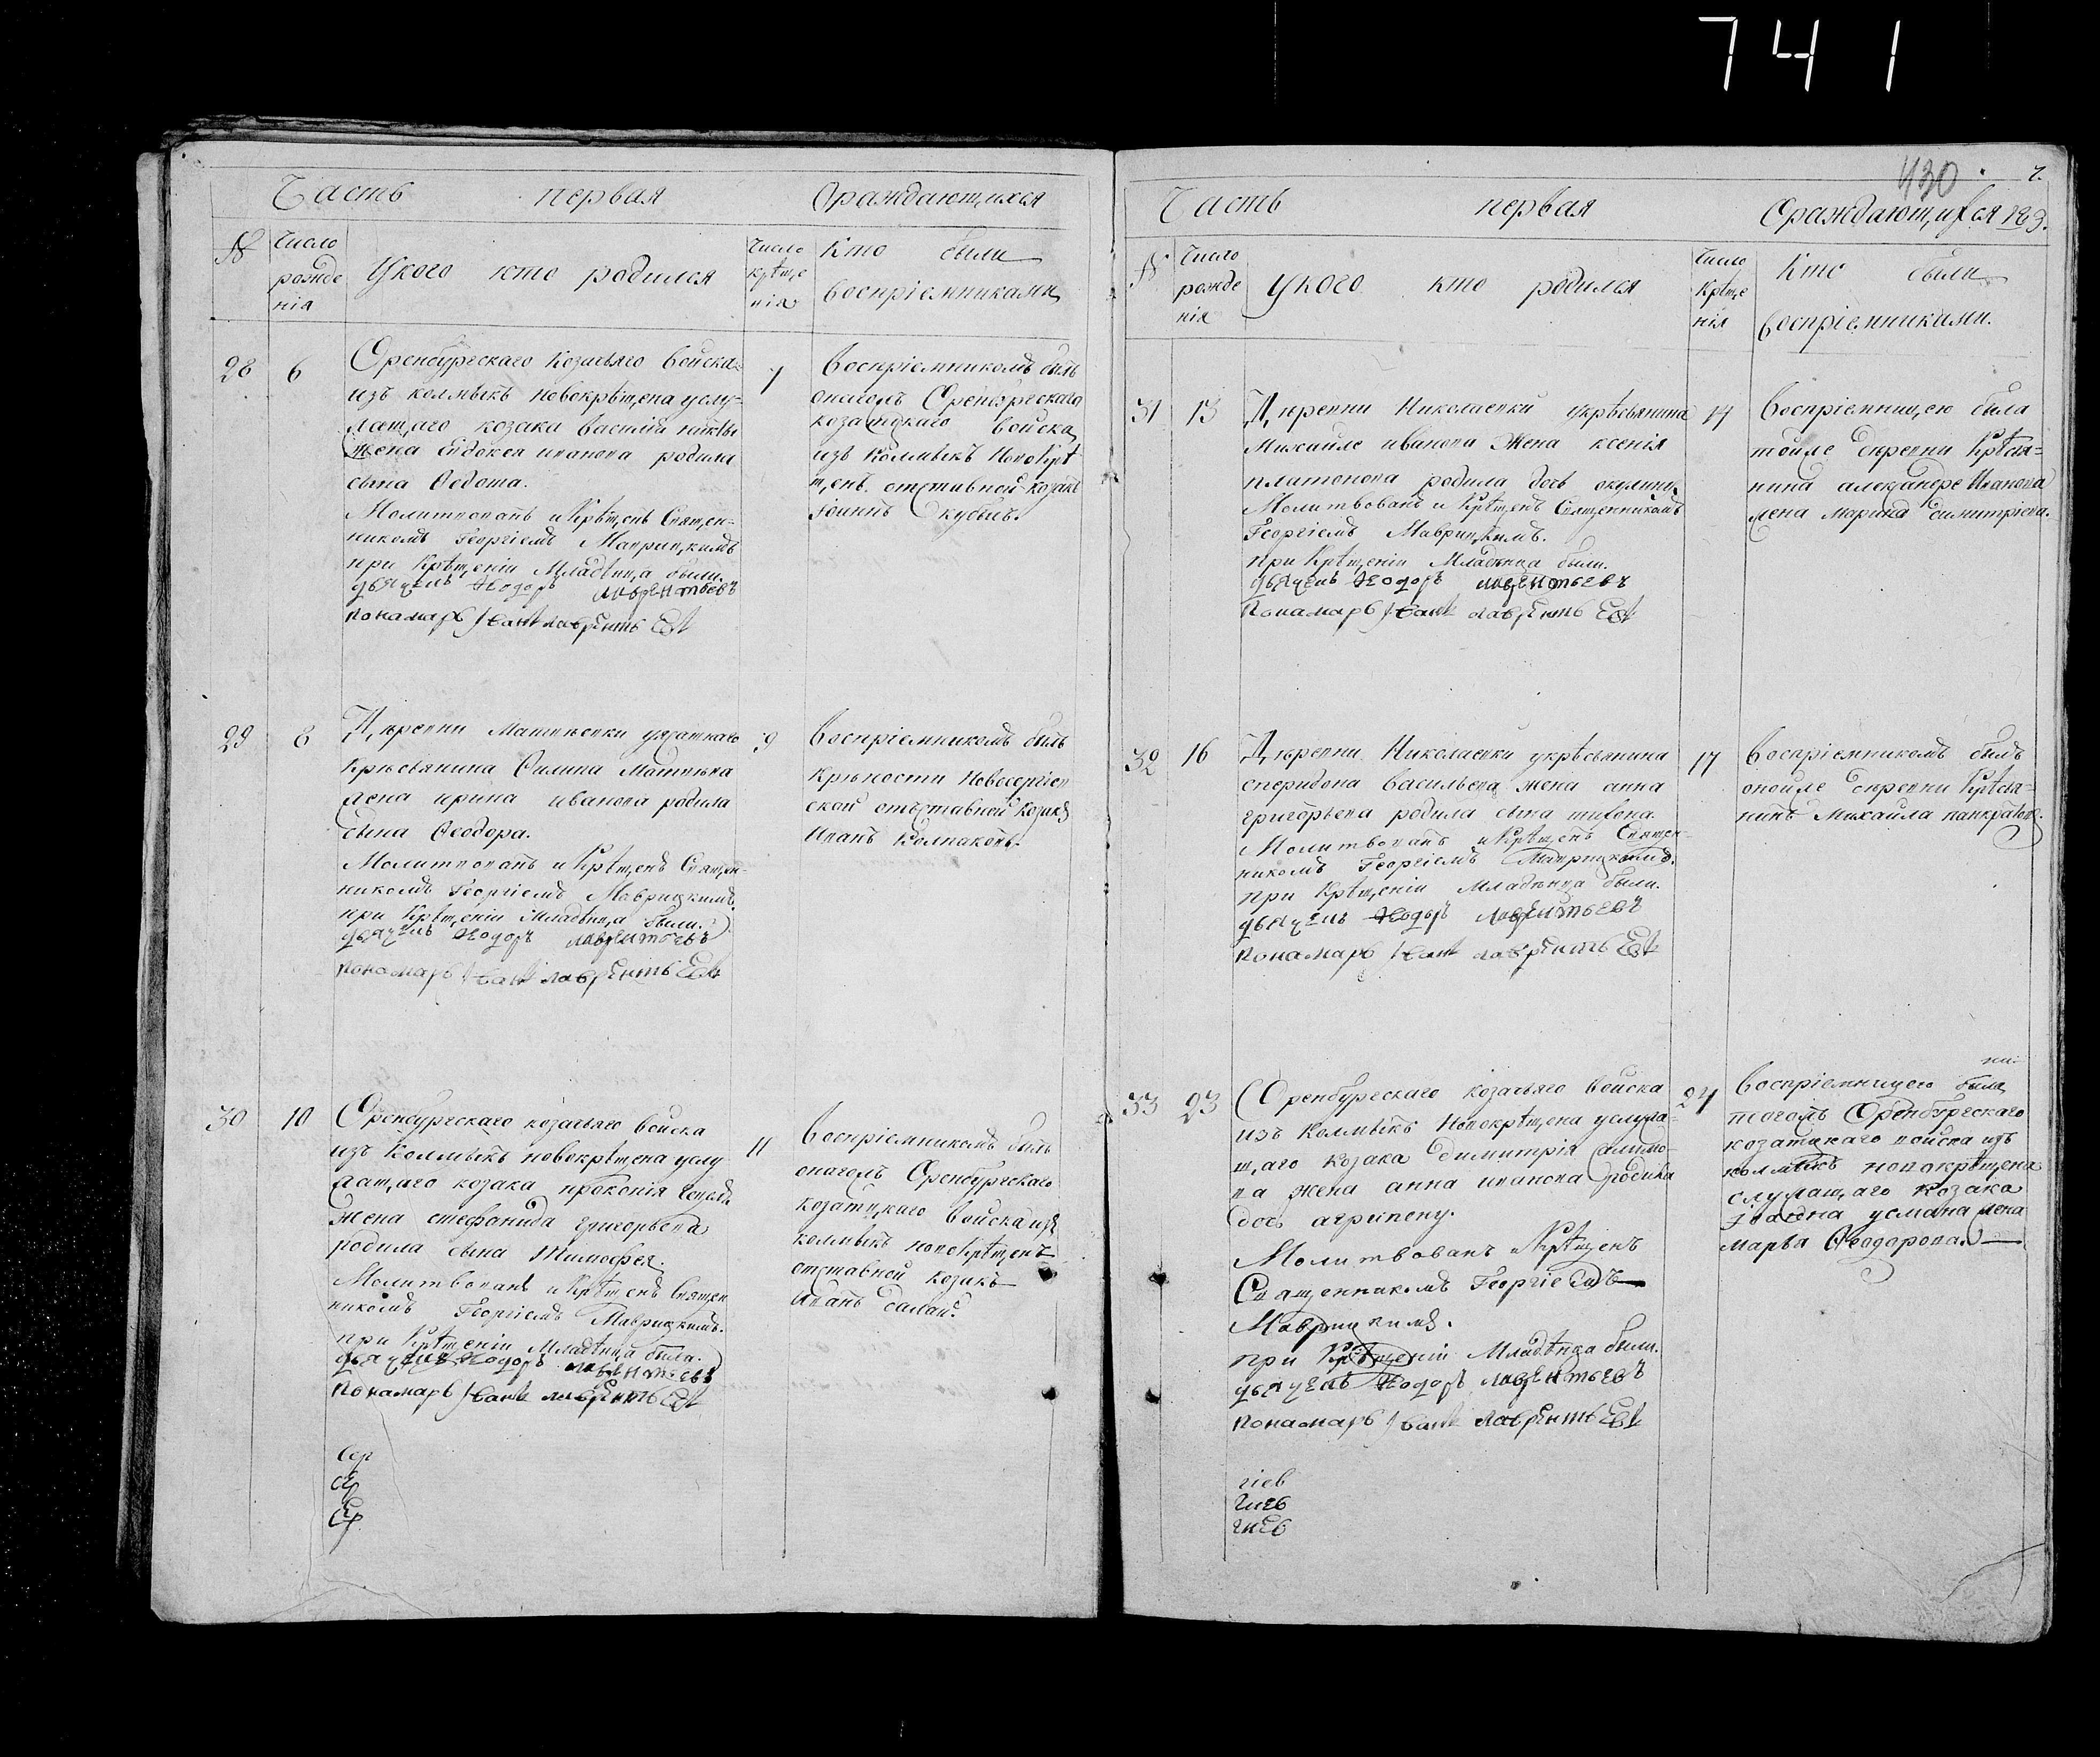 741
Часть первая Ораждающихся
№
Число рожденія
У кого кто родился
Число крѣщенія
Кто были воспріемниками
28
6
Оренбургскаго Козачьяго войска
изъ колмыкъ новокрѣщена услу=
жащаго козака василия
жена Евдокея иванова родила
сына Ѳедота.
Молитвованъ и Крѣщенъ Священ=
никомъ Георгіемъ Маврицкимъ
при Крѣщеніи Младѣнца были.
дьячекъ Ѳеодоръ лаврентьевъ
пономарь
7
Воспріемникомъ былъ
онагожъ Оренбургскаго
козатцкаго войска
изъ Колмыкъ Новокрѣ
щенъ отставной козакъ
іоаннъ кубышъ.
29
8
Дѣревни Матвѣевки уясашнаго
Крѣсьянина Силина Матвѣева
жена ирина иванова родила
сына Ѳеодора.
Молитвованъ и Крѣщенъ Священ=
никомъ Георгіемъ Маврицкимъ.
при Крѣщеніи Младѣнца были.
дьячекъ Ѳеодоръ лаврентьевъ
пономарь
9
Воспріемникомъ былъ
Крѣпости Новосергіев
ской отъставной Козакъ
Иванъ Колпаковъ.
30
10
Оренбургскаго козачьяго войска
изъ Колмыкъ новокрѣщена услу
жащаго козака прокопія
жена стефанида григорьева
родила сына Тимофея.
Молитвованъ и Крѣщенъ Священ
никомъ Георгіемъ Маврицкимъ.
при Крѣщеніи Младѣнца были.
дьячекъ Ѳеодоръ лаврентьевъ
пономарь
11
Воспріемникомъ былъ
онагожъ Оренбургскаго
козатцкаго войска изъ
колмыкъ новокрѣщенъ
отставной козакъ
Иванъ
Сер
Сер
Сер
430
7.
Часть первая Ораждающихся
№
Число рожденія
У кого кто родился
Число Крѣщенія
Кто были воспріемниками.
31
13
Дѣревни Николаевки укрѣсьянина
Михайле иванова Жена ксенія
платонова родила дочь окулину
Молитвованъ и Крѣщенъ Священникомъ
Георгіемъ Маврицкимъ.
при Крѣщеніи Младѣнца были.
дьячекъ Ѳеодоръ лаврентьевъ
пономарь
14
Воспріемницею была
тойже дѣревни Крѣсья=
нина александре Иванова
жена марина димитріева.
32
16
Дѣревни Николаевки укрѣсьянина
спиридона васильева жена анна
григорьева родила сына тихона.
Молитвованъ и Крѣщенъ Священ=
никомъ Георгіемъ Маврицкимъ.
при Крѣщеніи Младѣнца были.
дьячекъ Ѳеодоръ лаврентьевъ
пономарь
17
Воспріемникомъ былъ
онойже дѣревни Крѣсья=
нинъ Михайла панкратовъ.
33
23
Оренбургскаго козачьяго войска
изъ Колмыкъ Новокрѣщена услужа=
щаго козака димитрія
жена анна иванова родила
дочь агрипену.
Молитвованъ и Крѣщенъ
Священникомъ Георгіемъ
Маврицкимъ.
при Крѣщеніи Младѣнца были.
дьячекъ Ѳеодоръ лаврентьевъ
пономарь
24
Воспріемницею была
тогожъ Оренбургскаго
козатцкаго войска изъ
колмыкъ новокрѣщена
служащаго козака
усмана жена
марья Ѳеодорова.
гіев
гиев
гиев